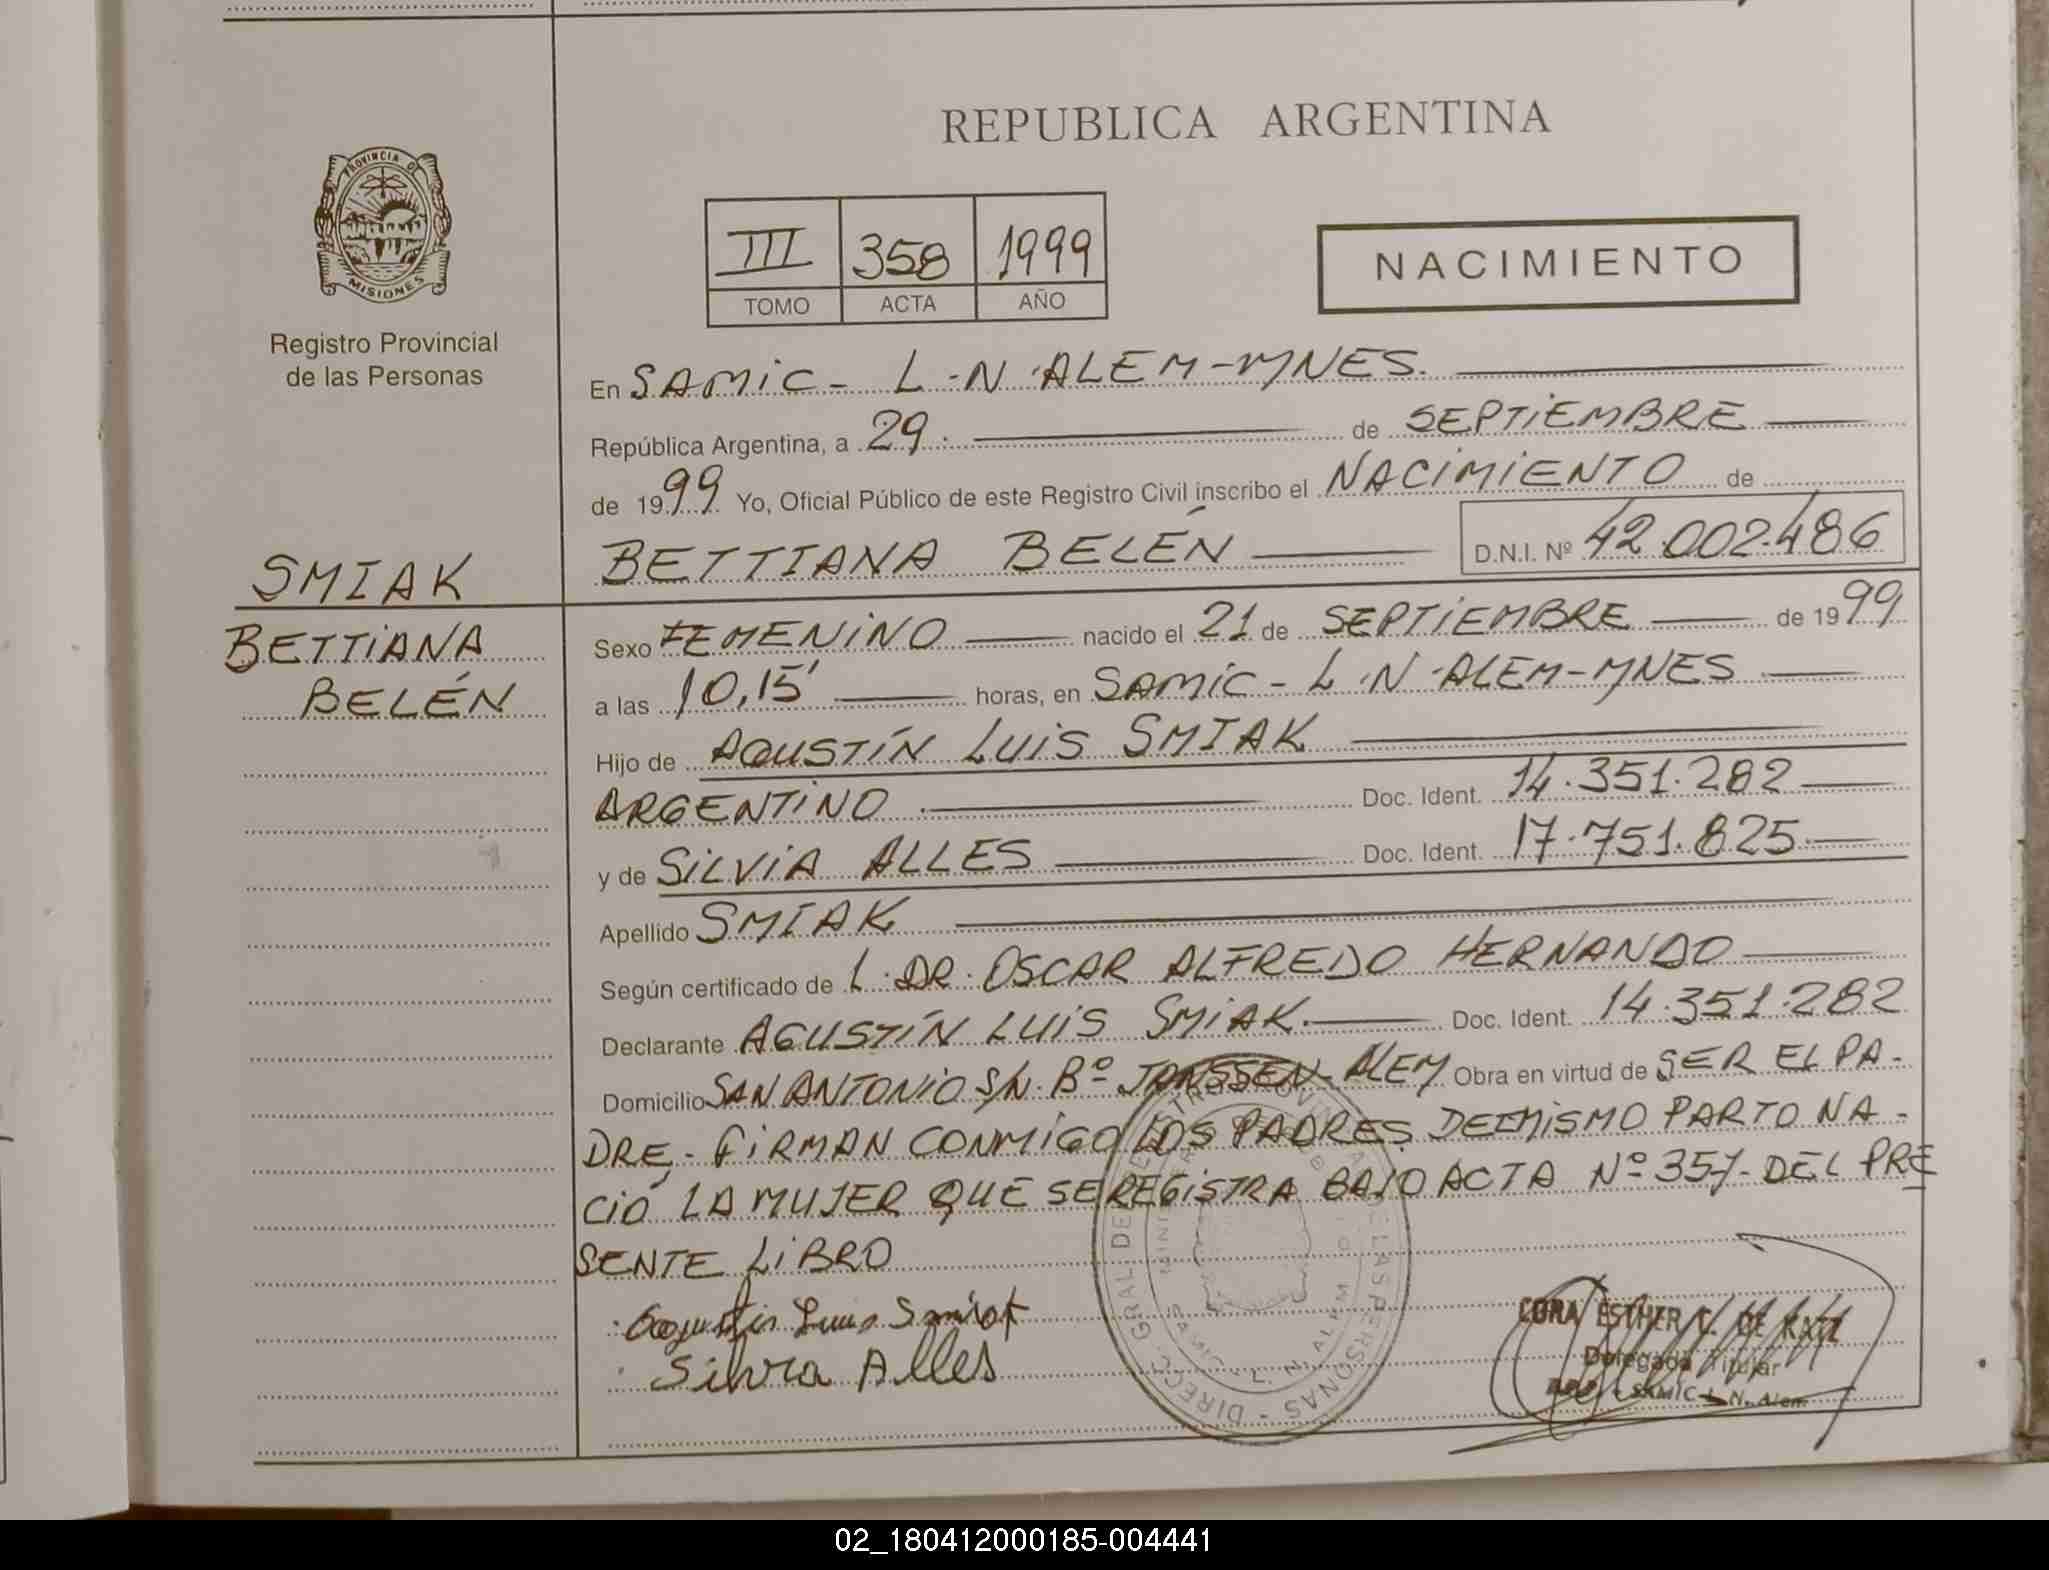 REPUBLICA ARGENTINA
PROVINCIA DE
MISIONES
Registro Provincial
de las Personas
III 358 1999
TOMO ACTA AÑO
NACIMIENTO
En SAMIC - L.N. ALEM - MNES.
República Argentina, a 29. de SEPTIEMBRE
de 1999 Yo, Oficial Público de este Registro Civil inscribo el NACIMIENTO de
BETTIANA BELÉN D.N.I. Nº 42.002.486
SMIAK
BETTIANA
BELÉN
Sexo FEMENINO nacido el 21 de SEPTIEMBRE de 1999
a las 10,15' horas, en SAMIC - L.N. ALEM - MNES
Hijo de AGUSTÍN LUIS SMIAK
ARGENTINO Doc. Ident. 14.351.282
y de SILVIA ALLES Doc. Ident. 17.751.825
Apellido SMIAK
Según certificado de L. DR. OSCAR ALFREDO HERNANDO
Declarante AGUSTÍN LUIS SMIAK. Doc. Ident. 14.351.282
Domicilio SAN ANTONIO S/N. Bº JANSSEN - ALEM Obra en virtud de SER EL PA-
DRE, - FIRMAN CONMIGO LOS PADRES. DEL MISMO PARTO NA-
CIÓ LA MUJER QUE SE REGISTRA BAJO ACTA Nº 357- DEL PRE
SENTE LIBRO
Agustin Luis Smiak
Silvia Alles
CORA ESTHER C. DE KATZ
Delegada Titular
SAMIC L. N. Alem
02_180412000185-004441